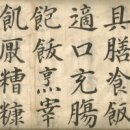 具膳飡飯
適口充腸
飽飯烹宰
飢厭糟糠